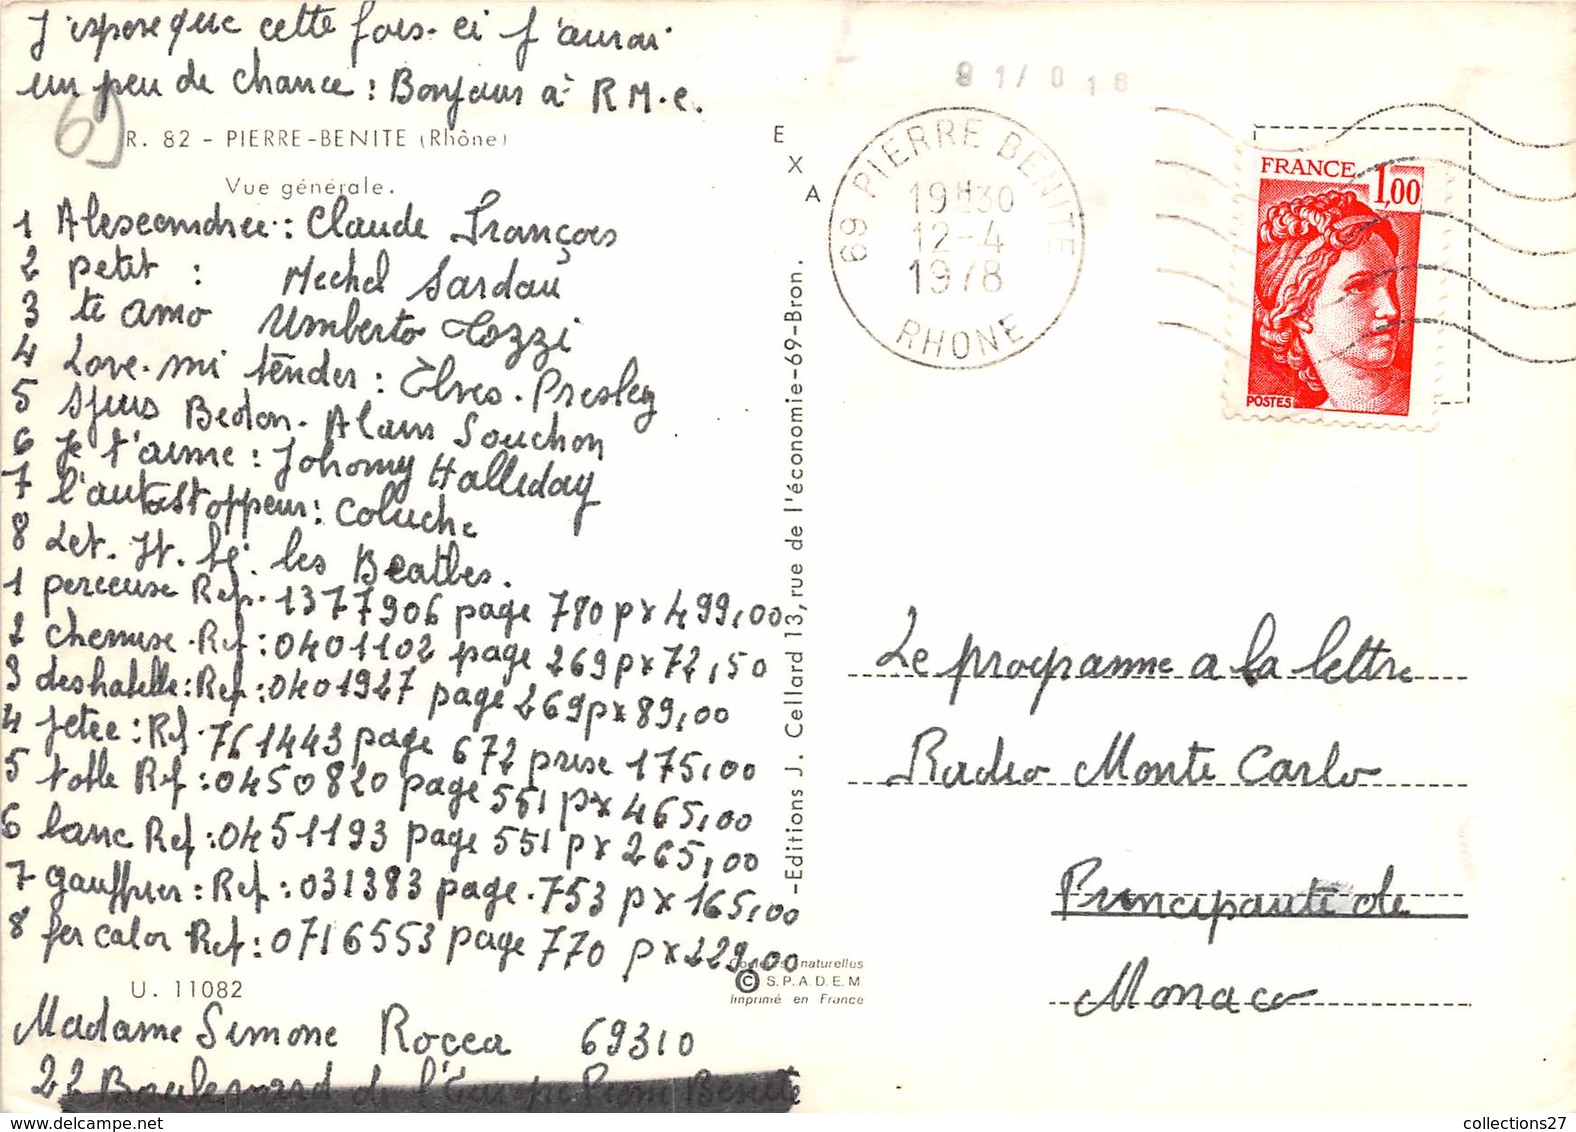 J'espore que cette fois-ci j'aurai
un peu de chance : Bonjour à R M.C.
69
R. 82 - PIERRE-BENITE (Rhône)
Vue générale.
1 Alescendree : Claude François
2 petit : Mechel Sardau
3 te amo Umberto Tozzi
4 Love-mi tender : Elves-Presley
5 Beaton. Alain Souchon
6 Je t'aime : Johomy Halleday
7 l'autostoppeur : Coluche
8 Let. It. be. les Beatles.
1 perceuse Ref. 1377906 page 780 px 499,00
2 chemise. Ref : 0401102 page 269 px 72,50
3 deshabelle : Ref : 0401927 page 269 px 89,00
4 jetee : Ref. 761443 page 672 prise 175,00
5 table Ref : 0450820 page 551 px 465,00
6 banc Ref : 0451193 page 551 px 265,00
7 gauffrier : Ref : 031383 page. 753 px 165,00
8 fer calor Ref : 0716553 page 770 px 229,00
U. 11082
Madame Simone Rocca 69310
22 Boulevard de l'Europe Pierre Benite
EXA
-Editions J. Cellard 13, rue de l'économie-69-Bron.
Couleurs naturelles
© S.P.A.D.E.M
Imprimé en France
69 PIERRE BENITE
19H30
12-4
1978
RHONE
FRANCE
1,00
POSTES
Le programme a la lettre
Radio Monte Carlo
Principauté de
Monaco
collections27